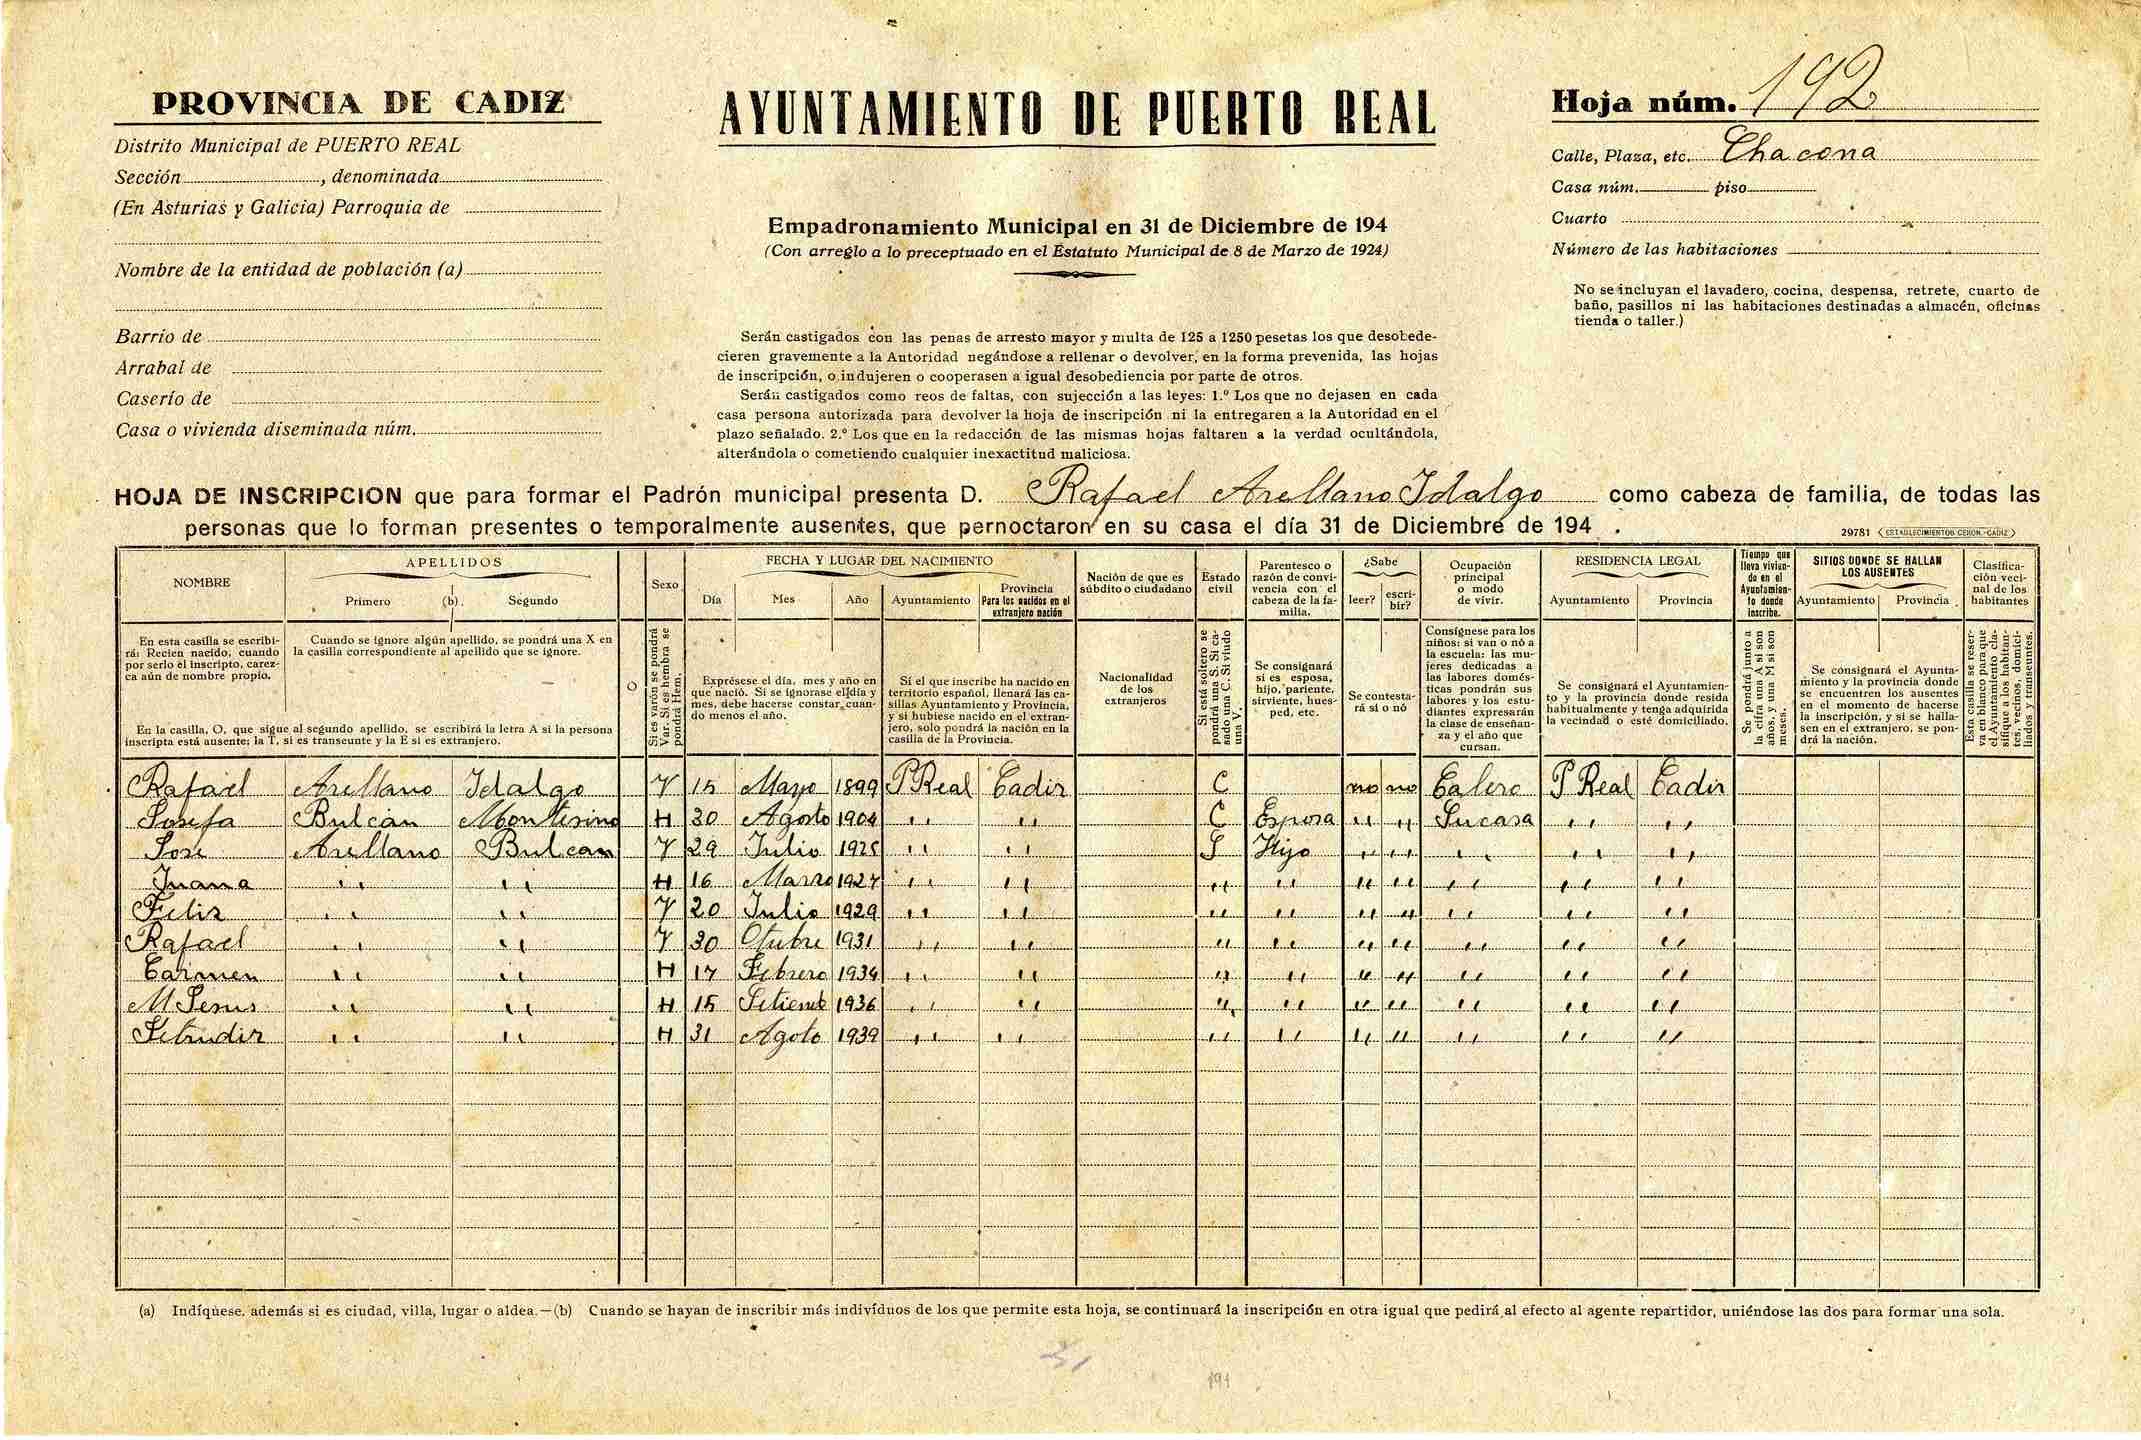 PROVINCIA DE CADIZ
Distrito Municipal de PUERTO REAL
Sección , denominada
(En Asturias y Galicia) Parroquia de
Nombre de la entidad de población (a)
Barrio de
Arrabal de
Caserío de
Casa o vivienda diseminada núm.
AYUNTAMIENTO DE PUERTO REAL
Empadronamiento Municipal en 31 de Diciembre de 194
(Con arreglo a lo preceptuado en el Estatuto Municipal de 8 de Marzo de 1924)
Serán castigados con las penas de arresto mayor y multa de 125 a 1250 pesetas los que desobede-
cieren gravemente a la Autoridad negándose a rellenar o devolver, en la forma prevenida, las hojas
de inscripción, o indujeren o cooperasen a igual desobediencia por parte de otros.
Serán castigados como reos de faltas, con sujección a las leyes: 1.º Los que no dejasen en cada
casa persona autorizada para devolver la hoja de inscripción ni la entregaren a la Autoridad en el
plazo señalado. 2.º Los que en la redacción de las mismas hojas faltaren a la verdad ocultándola,
alterándola o cometiendo cualquier inexactitud maliciosa.
Hoja núm. 192
Calle, Plaza, etc. Chacona
Casa núm. piso
Cuarto
Número de las habitaciones
No se incluyan el lavadero, cocina, despensa, retrete, cuarto de
baño, pasillos ni las habitaciones destinadas a almacén, oficinas
tienda o taller.)
HOJA DE INSCRIPCION que para formar el Padrón municipal presenta D. Rafael Arellano Idalgo como cabeza de familia, de todas las
personas que lo forman presentes o temporalmente ausentes, que pernoctaron en su casa el día 31 de Diciembre de 194 .
29781 (ESTABLECIMIENTOS CERON.-CADIZ)
NOMBRE
APELLIDOS
Primero (b). Segundo
Sexo
FECHA Y LUGAR DEL NACIMIENTO
Día Mes Año Ayuntamiento
Provincia
Para los nacidos en el
extranjero nación
Nación de que es
súbdito o ciudadano
Estado
civil
Parentesco o
razón de convi-
vencia con el
cabeza de la fa-
milia.
¿Sabe
leer? escri-
bir?
Ocupación
principal
o modo
de vivir.
RESIDENCIA LEGAL
Ayuntamiento Provincia
Tiempo que
lleva vivien-
do en el
Ayuntamien-
to donde
inscribe.
SITIOS DONDE SE HALLAN
LOS AUSENTES
Ayuntamiento Provincia
Clasifica-
ción veci-
nal de los
habitantes
En esta casilla se escribi-
rá: Recien nacido, cuando
por serlo el inscripto, carez-
ca aún de nombre propio.
Cuando se ignore algún apellido, se pondrá una X en
la casilla correspondiente al apellido que se ignore.
En la casilla, O, que sigue al segundo apellido, se escribirá la letra A si la persona
inscripta está ausente; la T, si es transeunte y la E si es extranjero.
O
Si es varón se pondrá
Var. Si es hembra se
pondrá Hem.
Exprésese el día, mes y año en
que nació. Si se ignorase el día y
mes, debe hacerse constar cuan-
do menos el año.
Si el que inscribe ha nacido en
territorio español, llenará las ca-
sillas Ayuntamiento y Provincia,
y si hubiese nacido en el extran-
jero, solo pondrá la nación en la
casilla de la Provincia.
Nacionalidad
de los
extranjeros
Si está soltero se
pondrá una S. Si ca-
sado una C. Si viudo
una V.
Se consignará
si es esposa,
hijo, pariente,
sirviente, hues-
ped, etc.
Se contesta-
rá sí o nó
Consígnese para los
niños: si van o nó a
la escuela: las mu-
jeres dedicadas a
las labores domés-
ticas pondrán sus
labores y los estu-
diantes expresarán
la clase de enseñan-
za y el año que
cursan.
Se consignará el Ayuntamien-
to y la provincia donde resida
habitualmente y tenga adquirida
la vecindad o esté domiciliado.
Se pondrá junto a
la cifra una A si son
años, y una M si son
meses.
Se consignará el Ayunta-
miento y la provincia donde
se encuentren los ausentes
en el momento de hacerse
la inscripción, y si se halla-
sen en el extranjero, se pon-
drá la nación.
Esta casilla se reser-
va en blanco para que
el Ayuntamiento cla-
sifique a los habitan-
tes, vecinos, domici-
liados y transeuntes.
Rafael Arellano Idalgo V 15 Mayo 1899 P Real Cadiz C no no Calero P Real Cadiz
Josefa Bulcan Montisino H 30 Agosto 1904 " " C Esposa " " Sucasa " "
Jose Arellano Bulcan V 29 Julio 1925 " " S Hijo " " " " "
Juana " " H 16 Marzo 1927 " " " " " " " " "
Feliz " " V 20 Julio 1929 " " " " " " " " "
Rafael " " V 30 Otubre 1931 " " " " " " " " "
Carmen " " H 17 Febrero 1934 " " " " " " " " "
M Jesus " " H 15 1936 " " " " " " " " "
H 31 Agoto 1939 " " " " " " " " "
(a) Indíquese, además si es ciudad, villa, lugar o aldea.—(b) Cuando se hayan de inscribir más individuos de los que permite esta hoja, se continuará la inscripción en otra igual que pedirá al efecto al agente repartidor, uniéndose las dos para formar una sola.
191